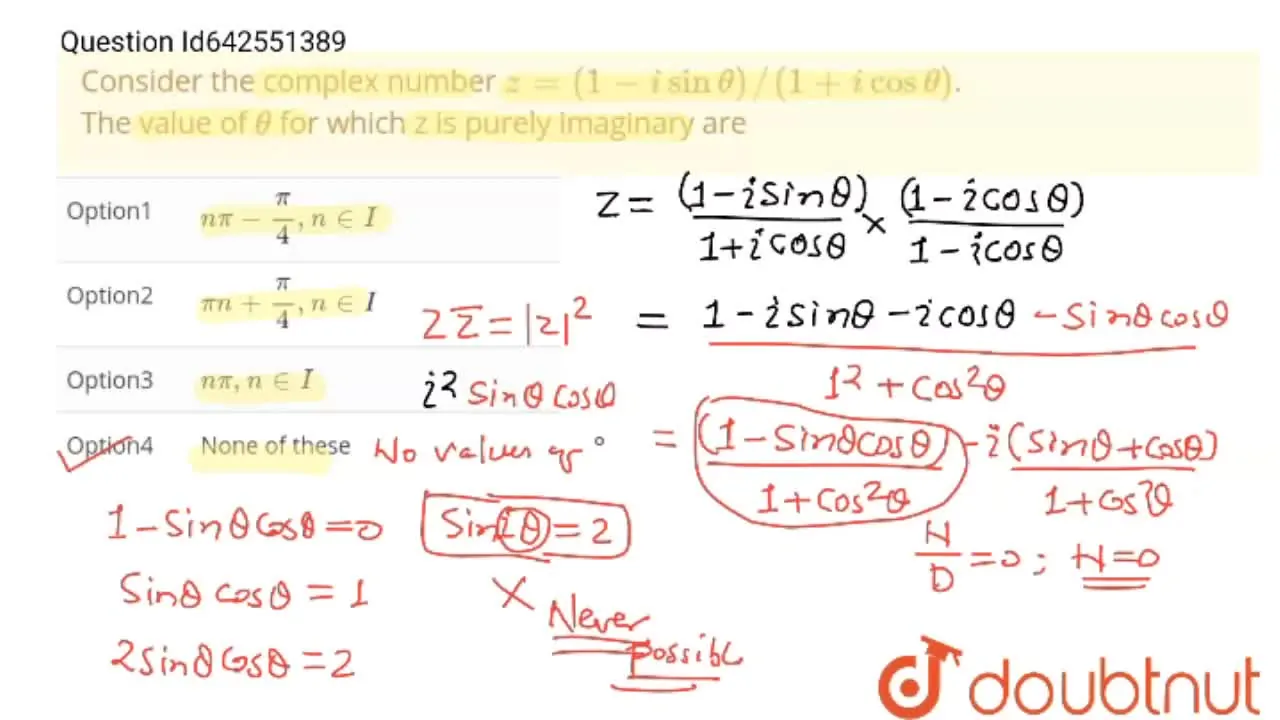 Question Id642551389
Consider the complex number z = (1 − i sin θ)/(1 + i cos θ).
The value of θ for which z is purely imaginary are
Option1 nπ − π/4, n ∈ I
Option2 πn + π/4, n ∈ I
Option3 nπ, n ∈ I
Option4 None of these
No values of
z = (1-isinθ)/(1+icosθ) × (1-icosθ)/(1-icosθ)
= (1-isinθ-icosθ-sinθcosθ)/(1²+cos²θ)
z z̅ = |z|²
i² sinθcosθ
= (1-sinθcosθ)/(1+cos²θ) - i(sinθ+cosθ)/(1+cos²θ)
N/D = 0; N=0
1-sinθcosθ=0
sinθcosθ=1
2sinθcosθ=2
Sin2θ=2
× Never
possible
doubtnut